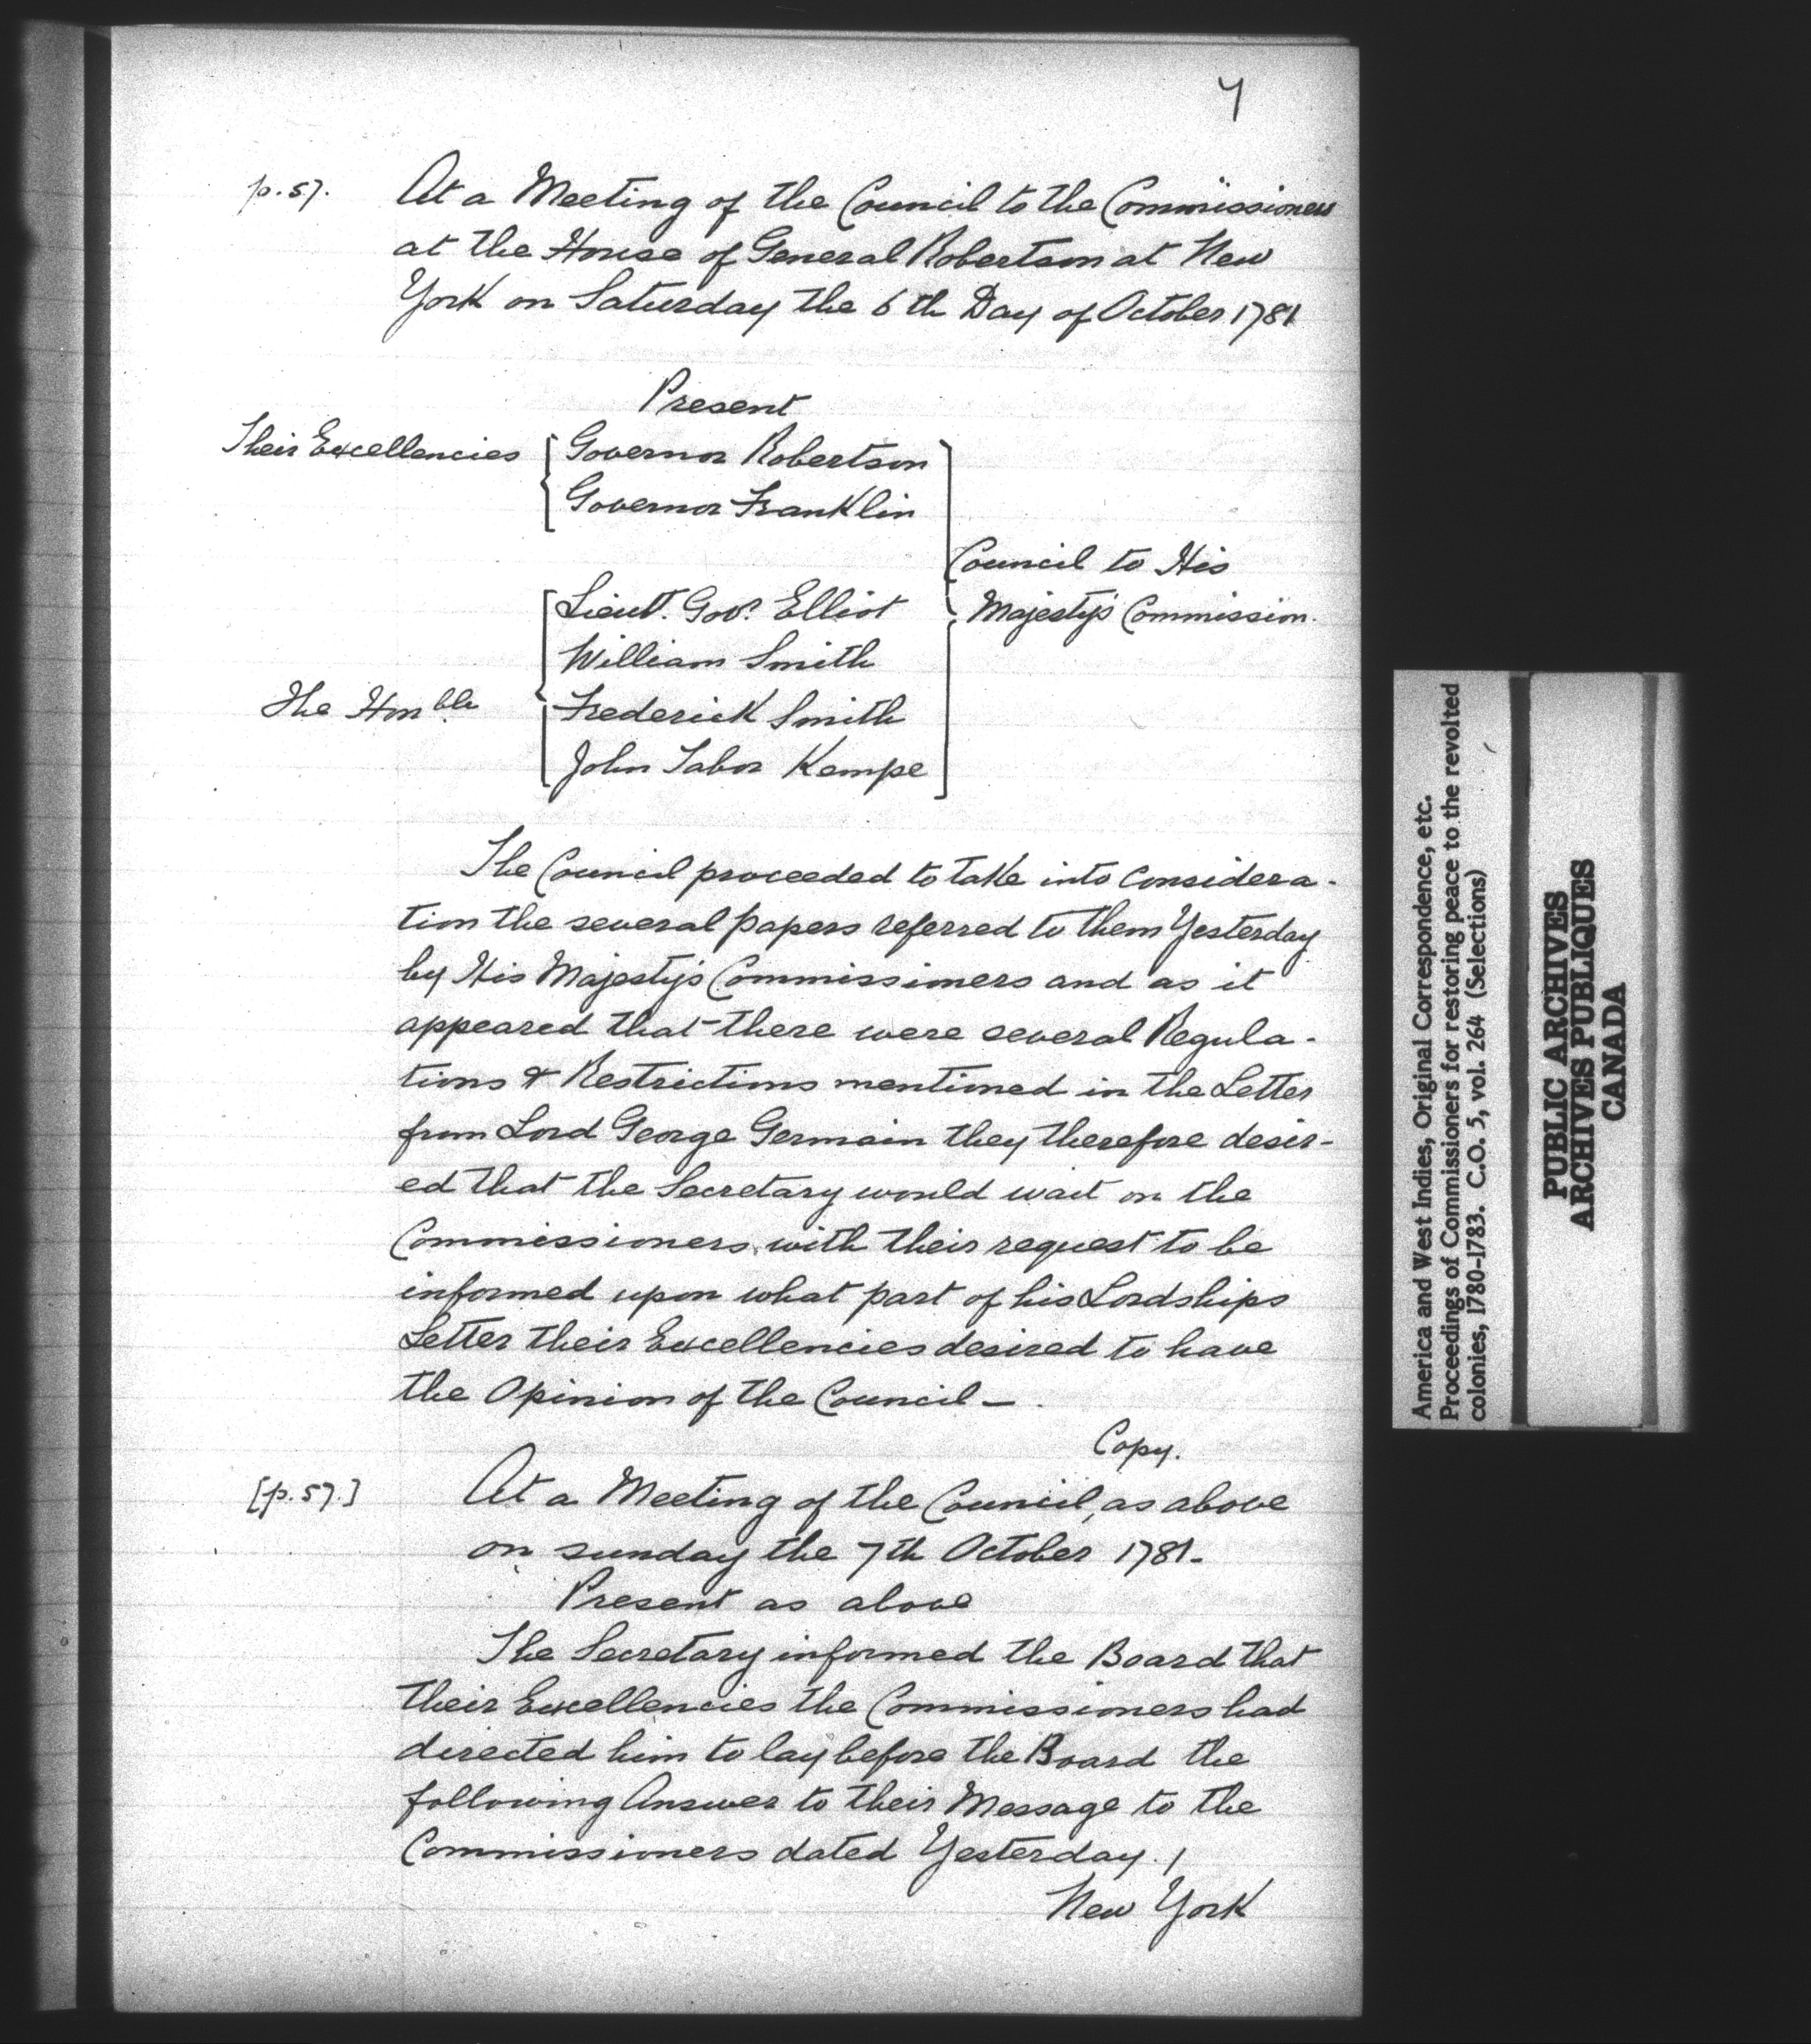 7
p. 57. At a Meeting of the Council to the Commissioners
at the House of General Robertson at New
York on Saturday the 6th Day of October 1781
Present
Their Excellencies { Governor Robertson
Governor Franklin
Council to His
Lieut. Govr. Elliot } Majesty's Commission.
William Smith
The Honble { Frederick Smith
John Tabor Kempe
The Council proceeded to take into Considera-
tion the several papers referred to them Yesterday
by His Majesty's Commissioners and as it
appeared that there were several Regula-
tions & Restrictions mentioned in the Letter
from Lord George Germain they therefore desir-
ed that the Secretary would wait on the
Commissioners, with their request to be
informed upon what part of his Lordships
Letter their Excellencies desired to have
the Opinion of the Council —.
Copy.
[p. 57.] At a Meeting of the Council, as above
on sunday the 7th October 1781-
Present as above
The Secretary informed the Board that
their Excellencies the Commissioners had
directed him to lay before the Board the
following Answer to their Message to the
Commissioners dated Yesterday. /
New York
America and West Indies, Original Correspondence, etc.
Proceedings of Commissioners for restoring peace to the revolted
colonies, 1780-1783. C.O. 5, vol. 264 (Selections)
PUBLIC ARCHIVES
ARCHIVES PUBLIQUES
CANADA